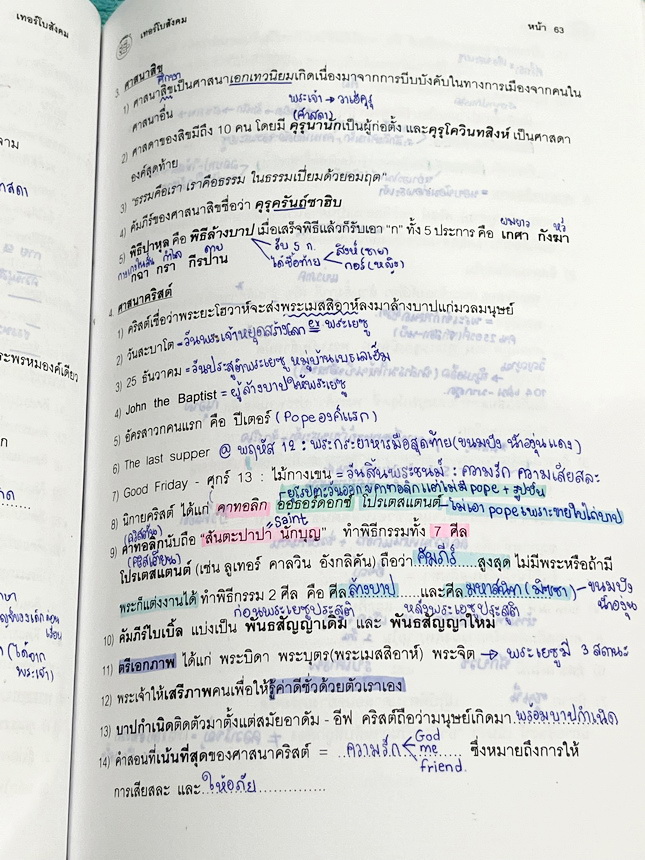 เทอร์โบสังคม
เทอร์โบสังคม
หน้า 63
3. ศาสนาสิข
ศึกษา
1) ศาสนาสิขเป็นศาสนาเอกเทวนิยมเกิดเนื่องมาจากการบีบบังคับในทางการเมืองจากคนใน
ศาสนาอื่น
พระเจ้า → วาเฮคุรุ
(ศาสดา)
2) ศาสดาของสิขมีถึง 10 คน โดยมี คุรุนานักเป็นผู้ก่อตั้ง และคุรุโควินทสิงห์ เป็นศาสดา
องค์สุดท้าย
3) "ธรรมคือเรา เราคือธรรม ในธรรมเปี่ยมด้วยอมฤต"
4) คัมภีร์ของศาสนาสิขชื่อว่า คุรุครันถ์ซาฮิบ
ผมยาว หวี
5) พิธีปาหุล คือ พิธีล้างบาป เมื่อเสร็จพิธีแล้วก็รับเอา "ก" ทั้ง 5 ประการ คือ เกศา กังฆา
กางเกงในสั้น กำไล ดาบ
กฉา กรา กีรปาน
รับ 5 ก.
ได้ชื่อท้าย
สิงห์ (ชาย)
กอร์ (หญิง)
4. ศาสนาคริสต์
1) คริสต์เชื่อว่าพระยะโฮวาห์จะส่งพระเมสสิอาห์ลงมาล้างบาปแก่มวลมนุษย์
พระเยซู
2) วันสะบาโต = วันพระเจ้าหยุดสร้างโลก
3) 25 ธันวาคม = วันประสูติพระเยซู หมู่บ้านเบธเลเฮ็ม
4) John the Baptist = ผู้ล้างบาปให้พระเยซู
5) อัครสาวกคนแรก คือ ปีเตอร์ (Pope องค์แรก)
6) The last supper @ พฤหัส 12 : พระกระยาหารมื้อสุดท้าย (ขนมปัง น้ำองุ่นแดง)
7) Good Friday - ศุกร์ 13 : ไม้กางเขน = วันสิ้นพระชนม์ : ความรัก ความเสียสละ
ยุโรปตะวันออก คาทอลิก แต่ไม่มี pope + รูปปั้น
8) นิกายคริสต์ ได้แก่ คาทอลิก ออธอร์ดอกซ์ โปรเตสแตนต์ - ไม่เอา pope เพราะขายใบไถ่บาป
(คริสตัง) = Saint
9) คาทอลิกนับถือ "สันตะปาปา นักบุญ" ทำพิธีกรรมทั้ง 7 ศีล
(คริสเตียน)
โปรเตสแตนต์ (เช่น ลูเทอร์ คาลวิน อังกลิคัน) ถือว่า คัมภีร์ สูงสุด ไม่มีพระหรือถ้ามี
พระก็แต่งงานได้ ทำพิธีกรรม 2 ศีล คือ ศีล ล้างบาป และศีล มหาสนิท (มิซซา) - ขนมปัง
น้ำองุ่น
ก่อนพระเยซูประสูติ หลังพระเยซูประสูติ
10) คัมภีร์ไบเบิ้ล แบ่งเป็น พันธสัญญาเดิม และ พันธสัญญาใหม่
11) ตรีเอกภาพ ได้แก่ พระบิดา พระบุตร(พระเมสสิอาห์) พระจิต → พระเยซูมี 3 สถานะ
12) พระเจ้าให้เสรีภาพคนเพื่อให้รู้ค่าดีชั่วด้วยตัวเราเอง
13) บาปกำเนิดติดตัวมาตั้งแต่สมัยอาดัม - อีฟ คริสต์ถือว่ามนุษย์เกิดมา พร้อมบาปกำเนิด
14) คำสอนที่เน้นที่สุดของศาสนาคริสต์ = ความรัก ซึ่งหมายถึงการให้
God
me
friend
การเสียสละ และ ให้อภัย